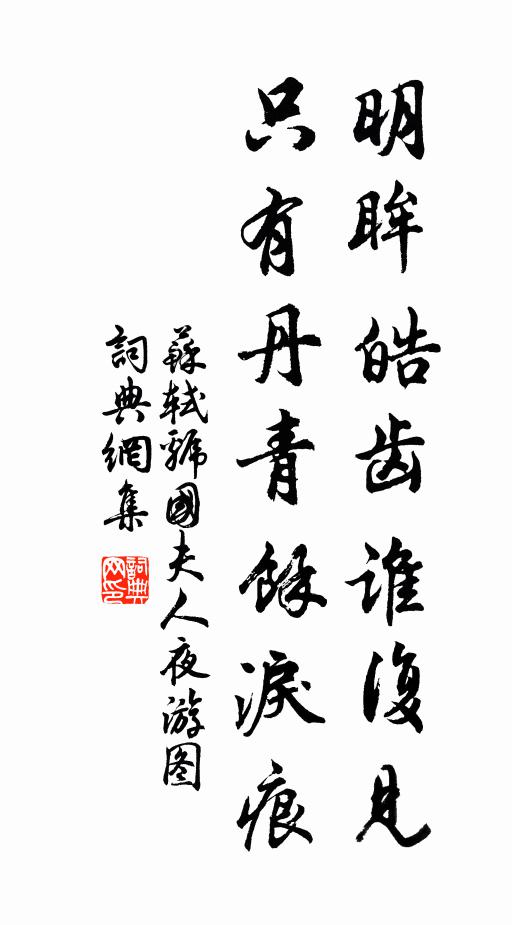 明眸皓齿谁復見
只有丹青餘淚痕
蘇軾虢國夫人夜游图
詞典網集
詞典网印